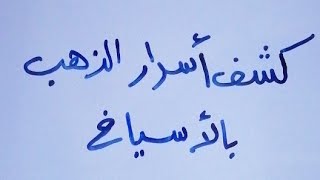 كشف أسرار الذهب
بالأسياخ